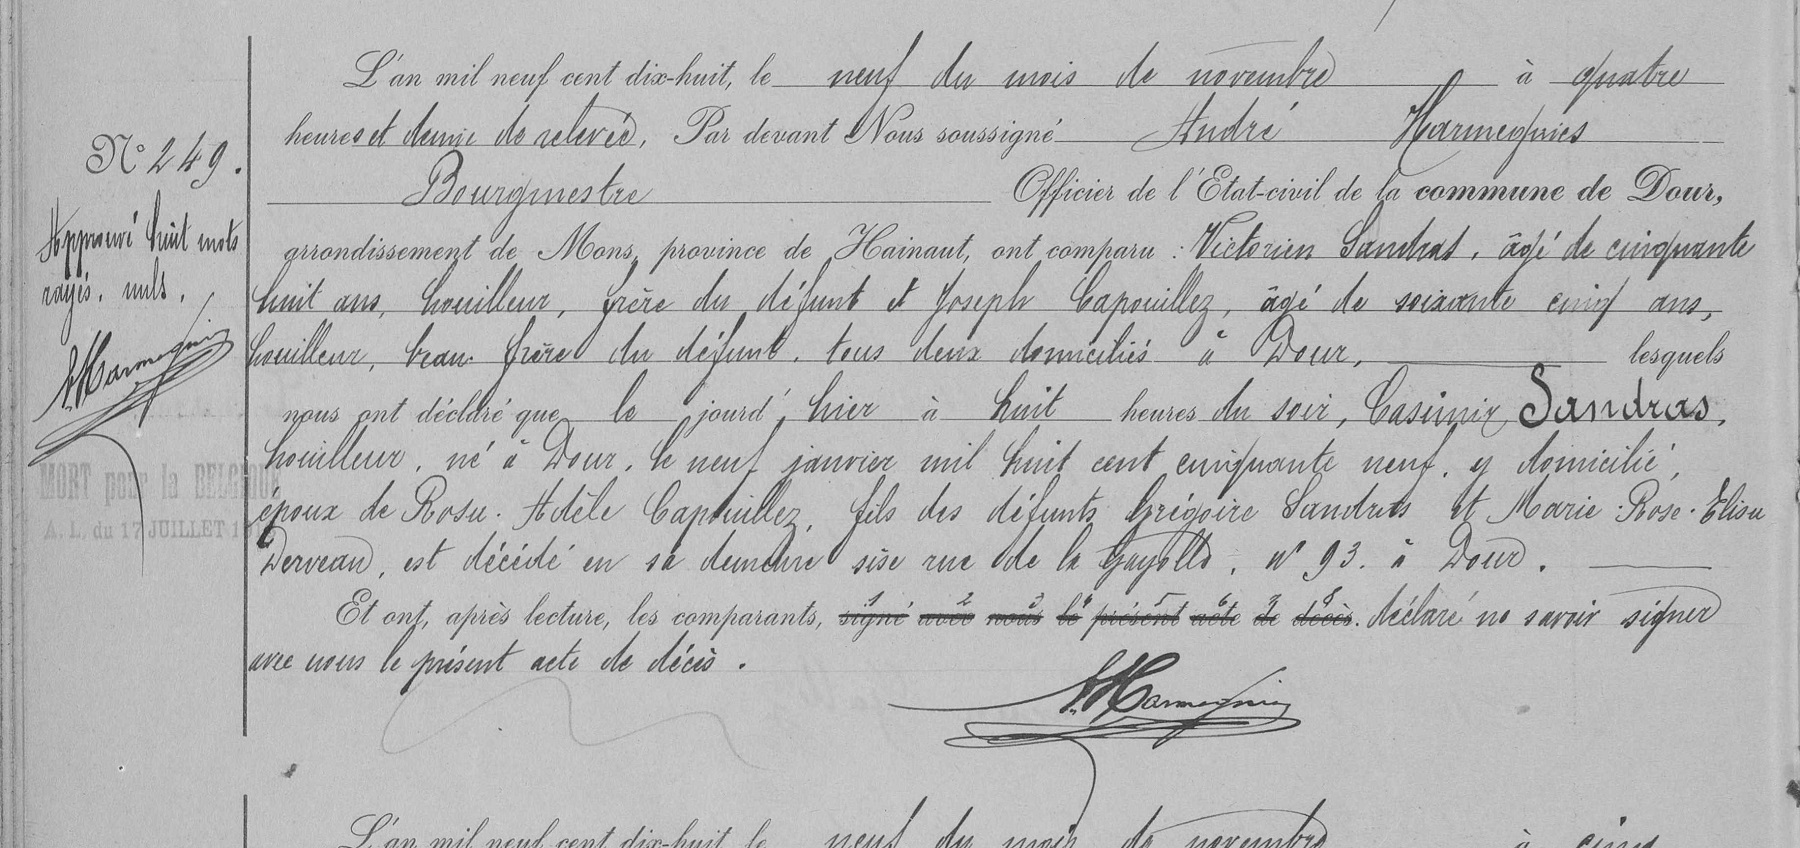 L'an mil neuf cent dix-huit, le neuf du mois de novembre à quatre
heures et demie de relevée, Par devant Nous soussigné André Harmegnies
N° 249.
Bourgmestre Officier de l'Etat-civil de la commune de Dour,
Approuvé huit mots
rayés. nuls.
arrondissement de Mons, province de Hainaut, ont comparu : Victorien Sandras, âgé de cinquante
huit ans, houilleur, frère du défunt et Joseph Capouillez, âgé de soixante cinq ans,
A. Harmegnies
houilleur, beau-frère du défunt, tous deux domiciliés à Dour, lesquels
nous ont déclaré que le jourd'hier à huit heures du soir, Casimir Sandras,
houilleur, né à Dour, le neuf janvier mil huit cent cinquante neuf, y domicilié,
MORT pour la BELGIQUE
A. L. du 17 JUILLET
époux de Rosa-Adèle Capouillez, fils des défunts Grégoire Sandras et Marie-Rose-Elisa
Derveau, est décédé en sa demeure sise rue de la Gayolle, n° 93. à Dour.
Et ont, après lecture, les comparants, signé avec nous le présent acte de décès. déclaré ne savoir signer
1 2 3 4 5 6 7 8
avec nous le présent acte de décès.
A. Harmegnies
L'an mil neuf cent dix-huit, le neuf du mois de novembre à cinq